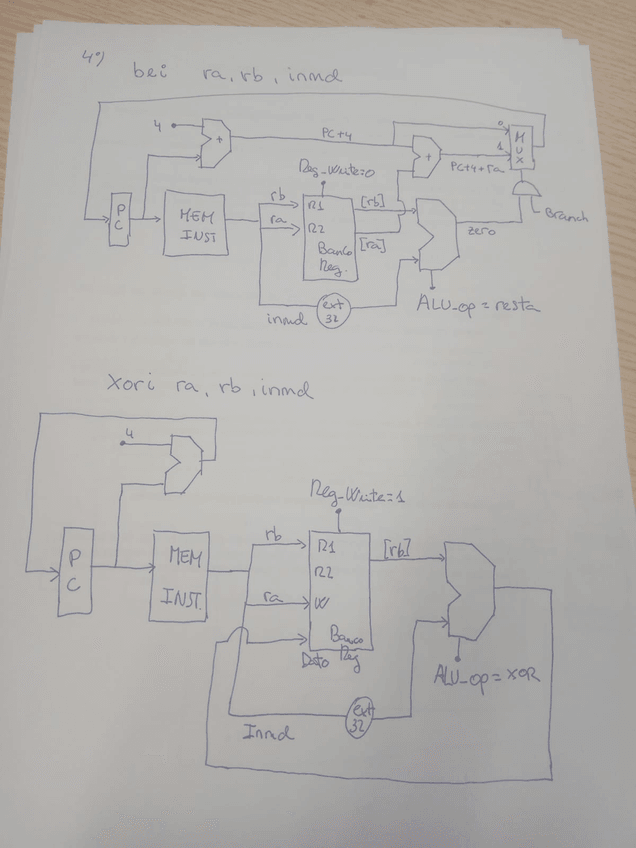 4º)
bei ra, rb, inmd
4
+
PC+4
+
0
1
MUX
PC+4+ra
Branch
Reg_Write=0
PC
MEM
INST
rb
ra
R1
R2
Banco
Reg.
[rb]
[ra]
zero
inmd
ext
32
ALU_op = resta
xori ra, rb, inmd
4
Reg_Write=1
PC
MEM
INST.
rb
ra
R1
R2
W
Banco
Reg
Dato
[rb]
ALU_op = XOR
Inmd
ext
32